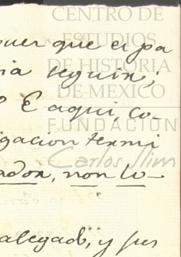 CENTRO DE
ESTUDIOS
DE HISTORIA
DE MEXICO
FUNDACIÓN
Carlos Slim
quer que el pa
ria seguir;
E aqui, co-
igacion termi
ador, non lo-
alegado, y sus